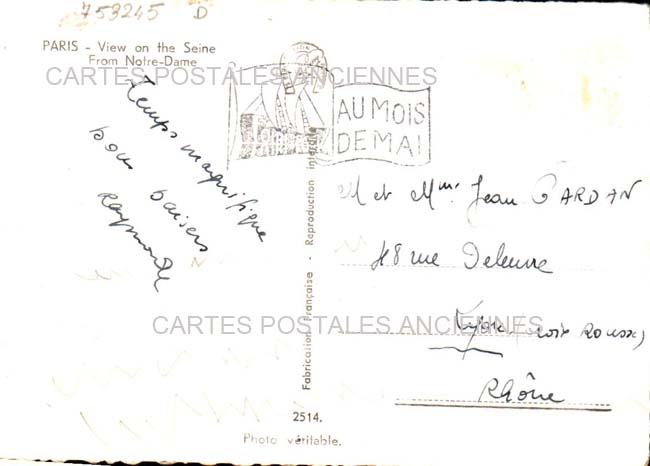 753245 D
PARIS - View on the Seine
From Notre-Dame
CARTES POSTALES ANCIENNES
AU MOIS
DE MAI
Temps magnifique
bons baisers
Raymonde
Fabrication Française - Reproduction interdite
M et Mme Jean GARDAN
48 rue Deleuvre
CARTES POSTALES ANCIENNES
Lyon (croix Rousse)
Rhône
2514.
Photo véritable.